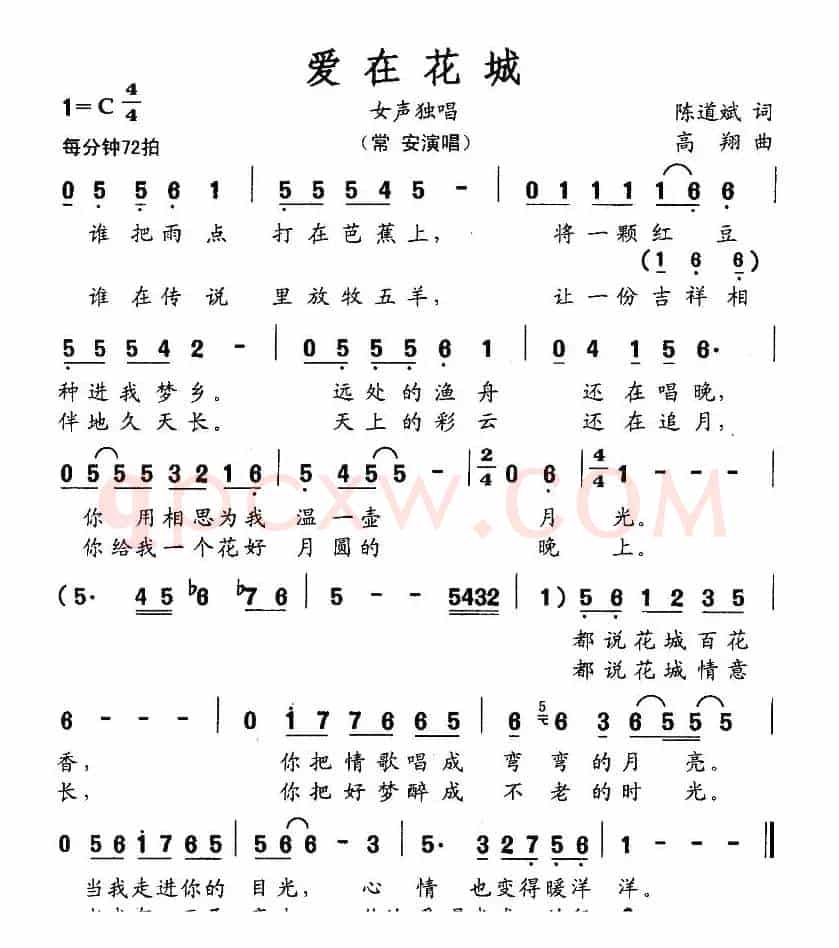 爱在花城
1=C 4/4 女声独唱 陈道斌 词
每分钟72拍 (常 安演唱) 高 翔 曲
0 5 5 6 1 | 5 5 5 4 5 - | 0 1 1 1 1 6 6 |
谁 把 雨 点 打 在 芭 蕉 上, 将 一 颗 红 豆
(1 6 6)
谁 在 传 说 里 放 牧 五 羊, 让 一 份 吉 祥 相
5 5 5 4 2 - | 0 5 5 5 6 1 | 0 4 1 5 6· |
种 进 我 梦 乡。 远 处 的 渔 舟 还 在 唱 晚,
伴 地 久 天 长。 天 上 的 彩 云 还 在 追 月,
0 5 5 5 3 2 1 6 | 5 4 5 5 - | 2/4 0 6 | 4/4 1 - - - |
你 用 相 思 为 我 温 一 壶 月 光。
你 给 我 一 个 花 好 月 圆 的 晚 上。
qpcxw.COM
(5· 4 5 ♭6 ♭7 6 | 5 - - 5432 | 1) 5 6 1 2 3 5 |
都 说 花 城 百 花
都 说 花 城 情 意
6 - - - | 0 1 7 7 6 6 5 | 6 5 6 3 6 5 5 5 |
香, 你 把 情 歌 唱 成 弯 弯 的 月 亮。
长, 你 把 好 梦 醉 成 不 老 的 时 光。
0 5 6 1 7 6 5 | 5 6 6 - 3 | 5· 3 2 7 5 6 | 1 - - - ‖
当 我 走 进 你 的 目 光, 心 情 也 变 得 暖 洋 洋。